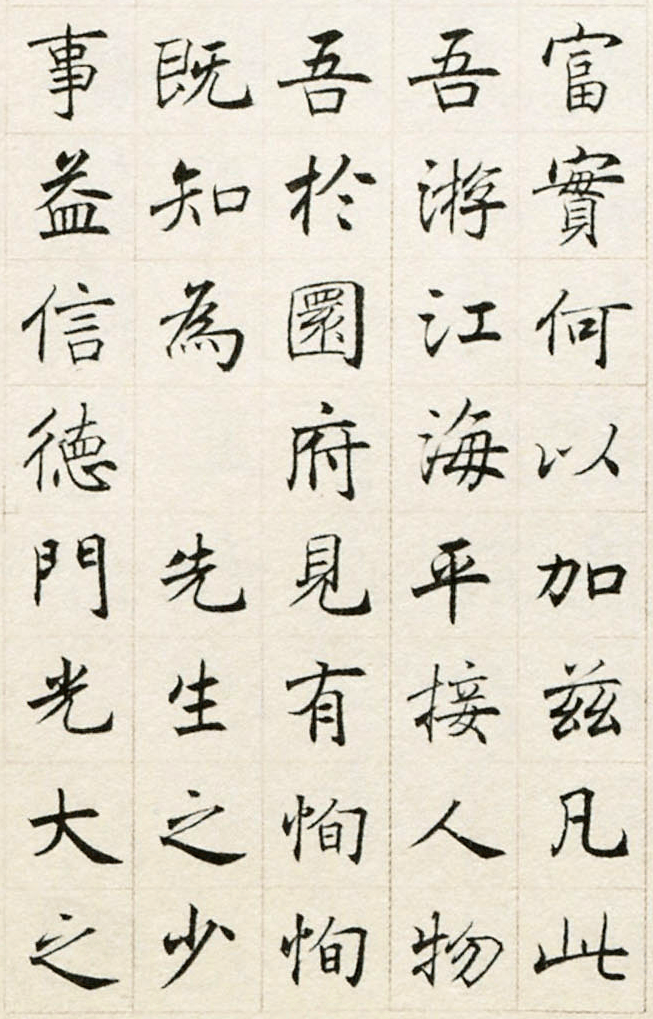 富實何以加兹凡此
吾游江海平接人物
吾於圜府見有恂恂
既知為 先生之少
事益信德門光大之